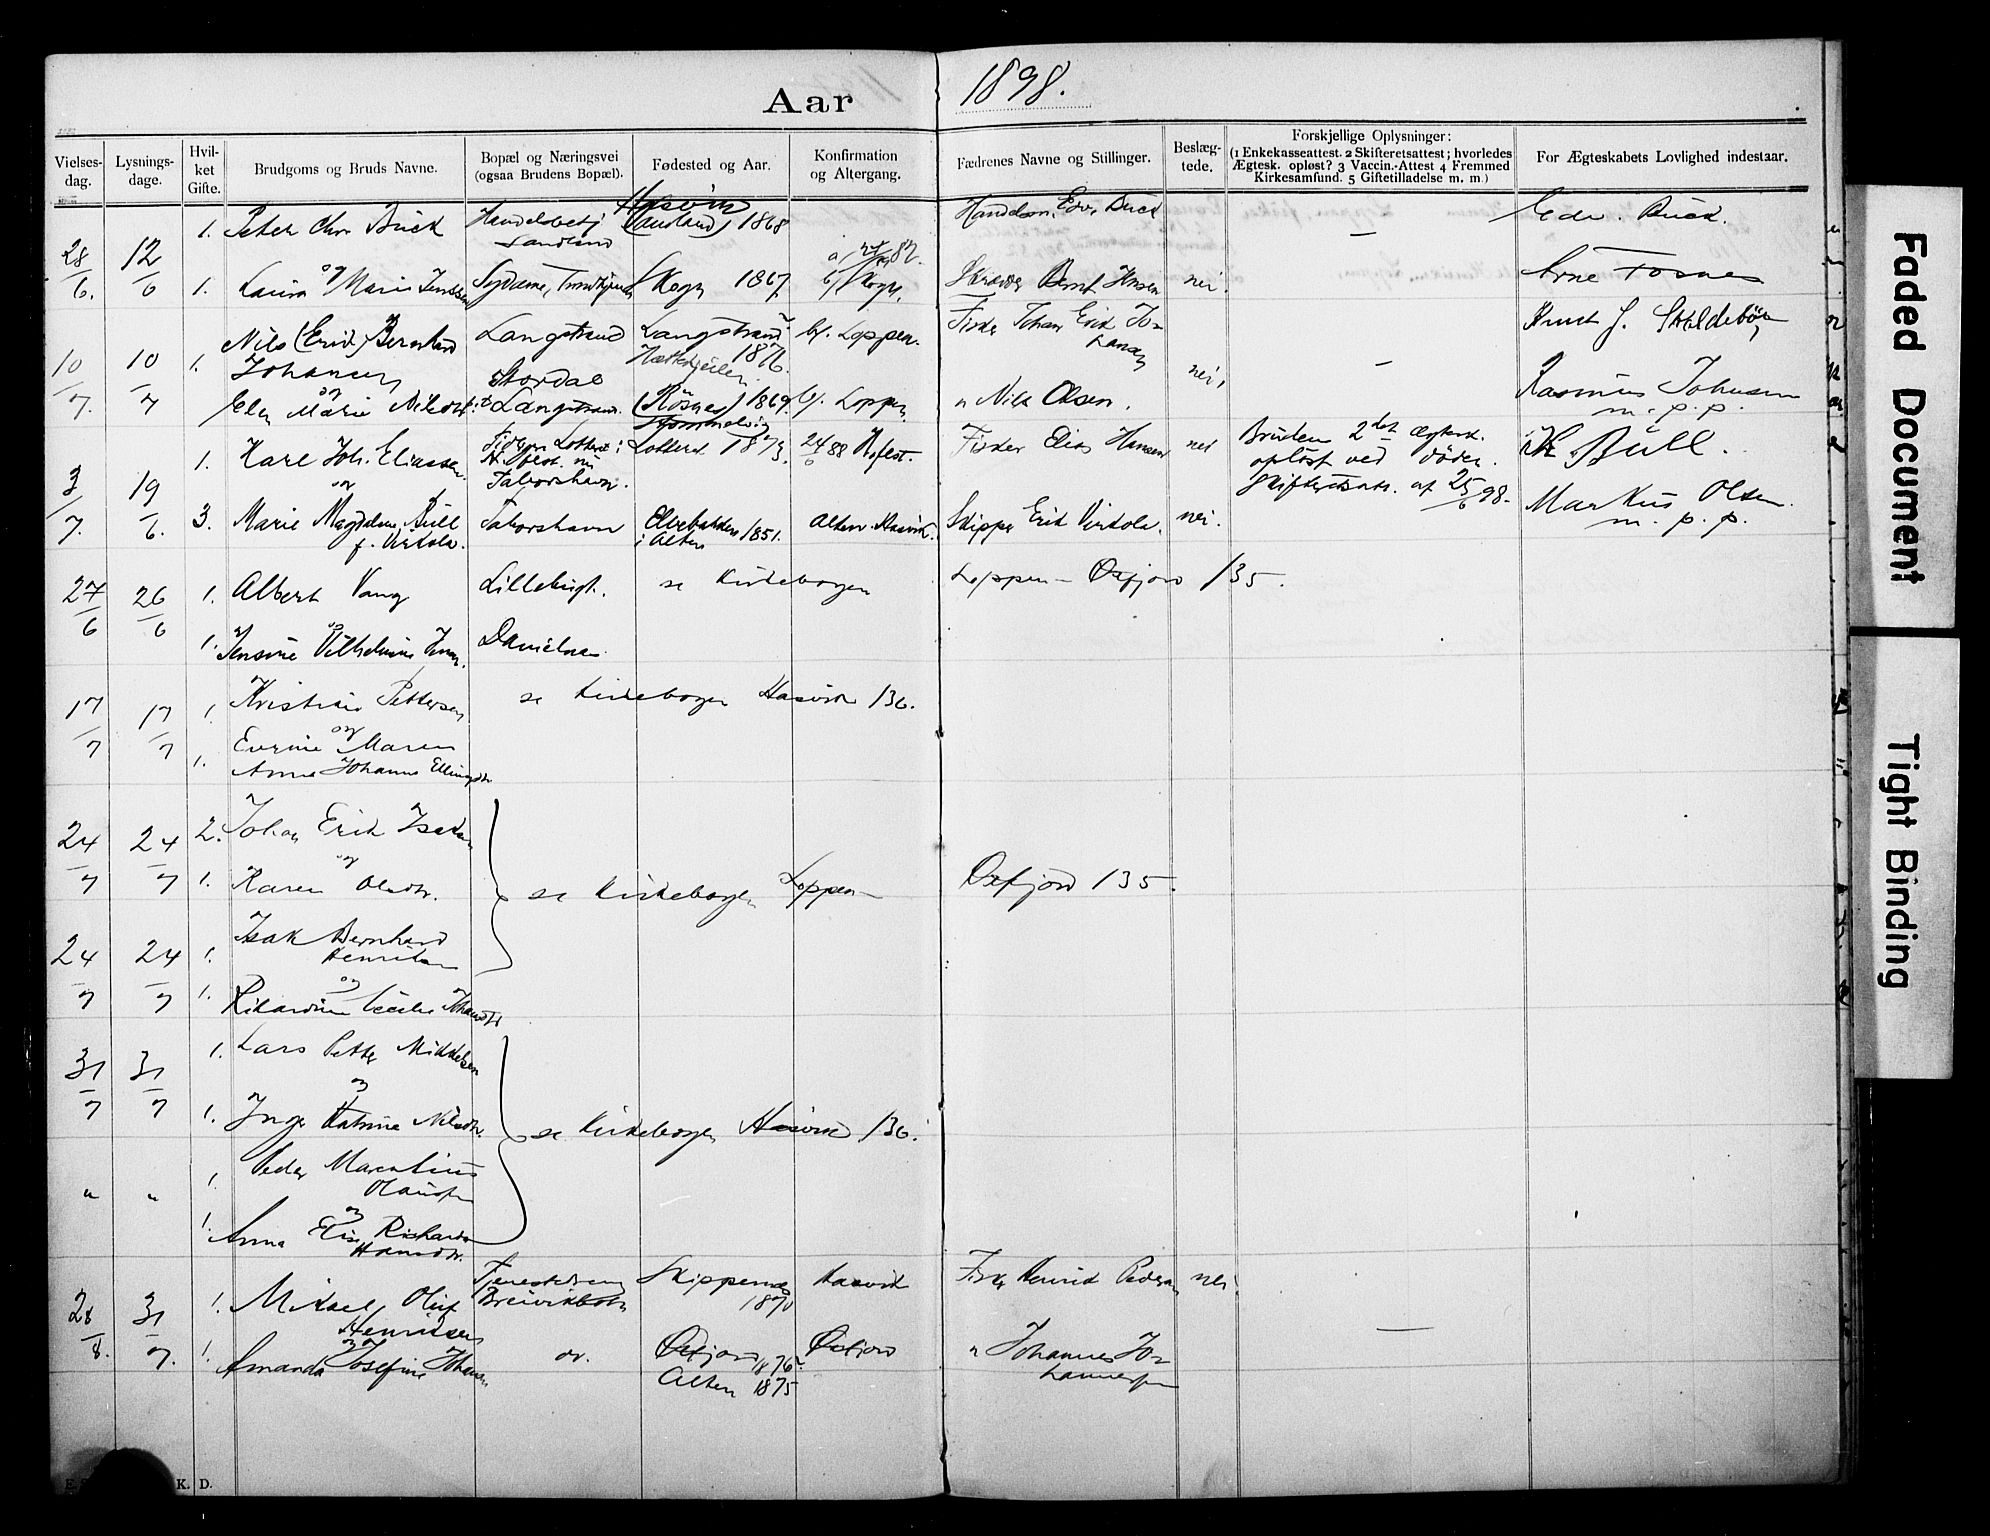 Aar 1898.
Vielses-dag.
Lysnings-dage.
Hvil-ket Gifte.
Brudgoms og Bruds Navne.
Bopæl og Næringsvei (ogsaa Brudens Bopæl).
Fødested og Aar.
Konfirmation og Altergang.
Fædrenes Navne og Stillinger.
Beslæg-tede.
Forskjellige Oplysninger:
(1 Enkekasseattest. 2 Skifteretsattest; hvorledes
Ægtesk. opløst? 3 Vaccin.-Attest 4 Fremmed
Kirkesamfund. 5 Giftetilladelse m. m.)
For Ægteskabets Lovlighed indestaar.
Hasvik
1. Peter Chr. Buck Handelsbetj (Sandland) 1868 Handelsm. Edv. Buck — Edv. Buck.
Sandland
28/6. 12/6 og
1. Laura Marie Jenssen Skogn 1867 b/ Skogn. Bernt Jensen nei. Arne Fosnes
10/7. 10/7 1. Nils (Erik) Bernhard Langstrand Langstrand 1876. b/. Loppen. Fisker Johan Erik Jo-
Johansen hansen —
og Stordal nei,
Elen Marie Langstrand. (Rösnes) 1869. b/. Loppen " Nils Olsen. Rasmus Johnsen
m. p. p.
3/7. 19/6. 1. Karl Joh. Eliassen Lotteret 1873. 24/6 88 Fisker Elias Hansen nei Bruden 2det ægtesk. Bull.
og opløst ved døden.
Taborshavn. Skifteretsatt. af 25/6 98.
3. Marie Magdalene Bull Taborshavn Elvebakken 1851. Alten. Hasvik. Skipper Erik Virkola. nei. Markus Olsen.
f. Virkola. i Alten m. p. p.
27/6 26/6 1. Albert Vang Lillebugt. se Kirkebogen Loppen – Øxfjord 135.
og
1. Jensine Vilhelmine Danielnes
17/7 17/7 1. Kristian Pettersen se Kirkebogen Hasvik 136.
og
1. Evrine Maren
Anna Johanna Ellingsdtr
24/7 24/7 2. Johan Erik Isaksen
og
1. Karen Olsdtr. se Kirkebogen Loppen – Øxfjord 135.
24/7 24/7 1. Isak Bernhard
Henriksen
og
1. Rikardine Cecilie Johansdtr
31/7 31/7 1. Lars Petter Mikkelsen
og
1. Inger Katrine Nilsdtr. se Kirkebogen Hasvik 136.
" " 1. Peder Marentius
Olausen
og
1. Anna Elise Rikharda
Hansdtr.
28/8. 31/7. 1. Mikael Oluf Tjenestedreng Hasvik Fisker Henrik Pedersen nei.
Henriksen Breivikbotn 1870
og —
1. Amanda Josefine Johansen do. Øxfjord 1876 Øxfjord " Johannes Jo-
Alten 1875 hannesen
K. D.
Faded Document
Tight Binding